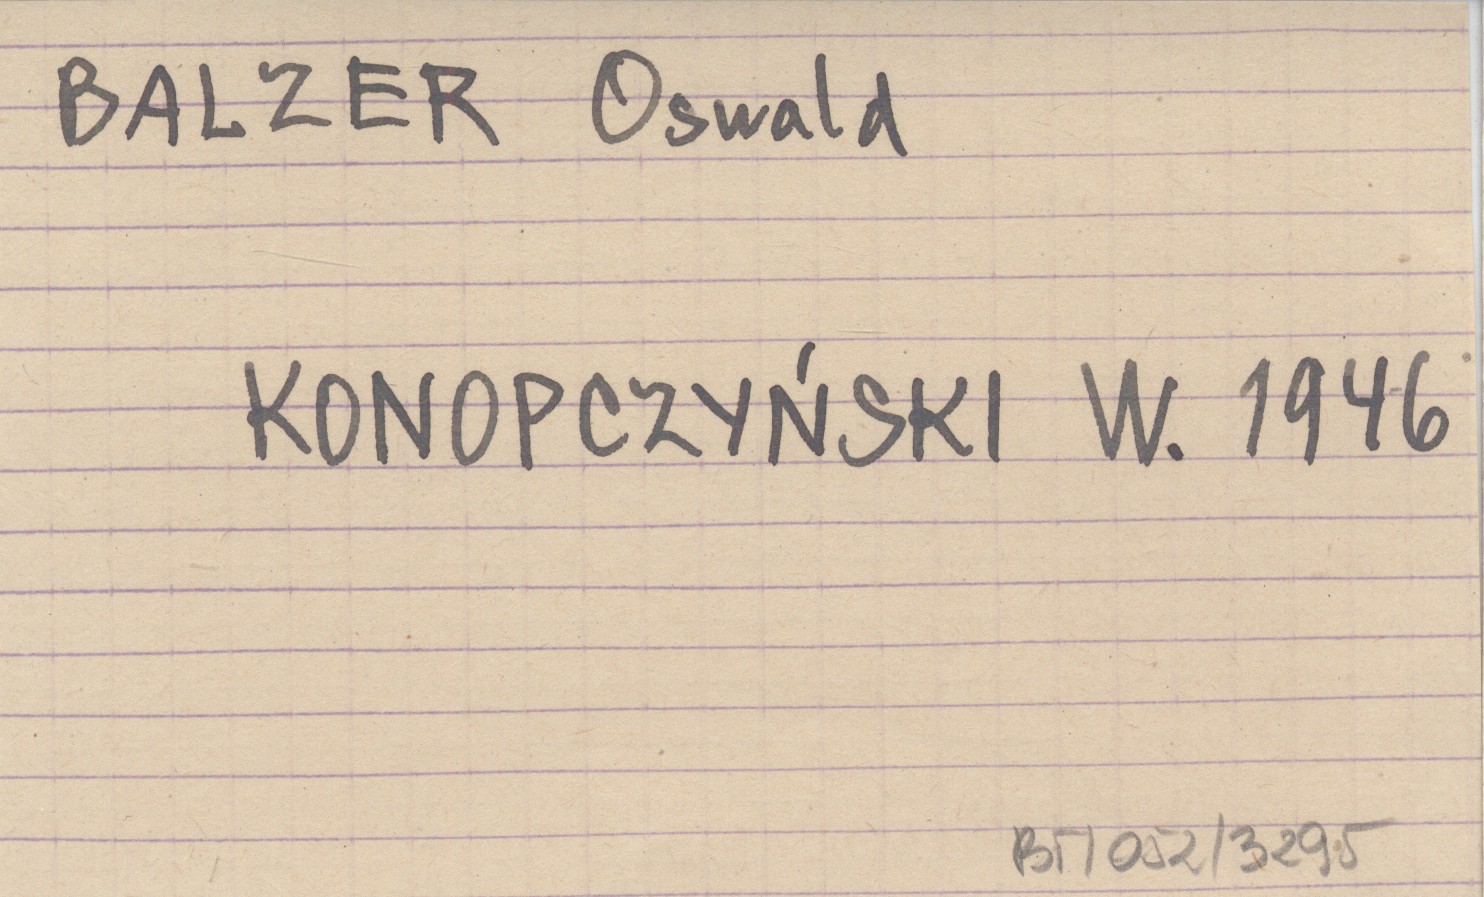 BALZER Oswald
KONOPCZYŃSKI W. 1946
BF/052/3295